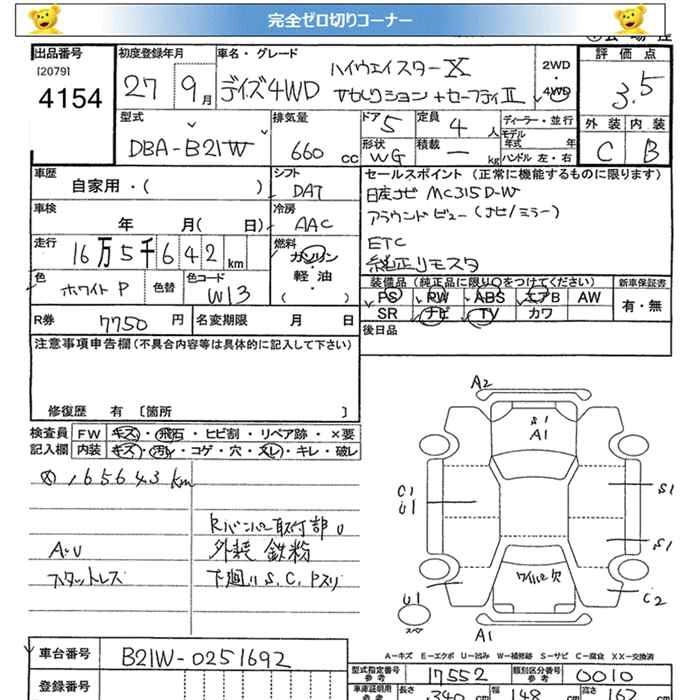 完全ゼロ切りコーナー
出品番号 初度登録年月 車名・グレード 2WD 評価点
[2079] 27 9月 デイズ4WD ハイウェイスターX 4WD 3.5
4154 Vセレクション+セーフティII 外装 内装
型式 排気量 ドア 5 定員 4人 ディーラー・並行 C B
モデル年式 年式
DBA-B21W 660cc 形状 WG 積載 ー kg ハンドル 左・右
車歴 シフト セールスポイント(正常に機能するものに限ります)
自家用・( ) DAT 日産ナビ MC315D-W
車検 冷房 アラウンドビュー(ナビ/ミラー)
年 月( 日) AAC
走行 燃料 ETC
16万5千642km ガソリン・軽油・( ) 純正リモスタ
色 色替 色コード 装備品(純正品に限り○をつけてください) 新車保証書
ホワイトP W13 PS PW ABS エアB AW 有・無
R券 7750円 名変期限 月 日 SR ナビ TV カワ
後日品
注意事項申告欄(不具合内容等は具体的に記入して下さい)
修復歴 有〔箇所 〕
検査員 FW キズ・飛石・ヒビ割・リペア跡・×要
記入欄 内装 キズ・汚レ・コゲ・穴・スレ・キレ・破レ
165643km
Rバンパー取付部U
A・U 外装 鉄粉
スタットレス 下廻りS.C.Pスリ
A2
S1
A1
C1
U1
S1
S1
ワイパー欠
U1
C2
スペア
A1
A-キズ E-エクボ U-凹み W-補修跡 S-サビ C-腐食 XX-交換済
車台番号 B21W-0251692 型式指定番号 参考 17552 類別区分番号 参考 0010
登録番号 車庫証明用 参考 長さ 340 cm 幅 148 cm 高さ 162